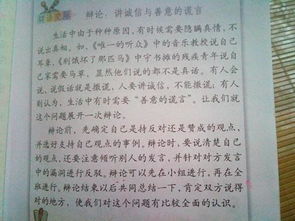 口语交际
辩论:讲诚信与善意的谎言
生活中由于种种原因,有时候需要隐瞒真情,不
说出真相。如,《唯一的听众》中的音乐教授说自己
耳聋,《别饿坏了那匹马》中守书摊的残疾青年说自
己家需要马草,显然他们说的都不是真话。有人会
说,说假话就是撒谎,人要讲诚信,不能撒谎;有人
则认为,生活中有时需要“善意的谎言”。让我们就
这个问题展开一次辩论。
辩论前,先确定自己是持反对还是赞成的观点,
并选好支持自己观点的事例。辩论时,要说清楚自己
的观点,还要注意倾听别人的发言,并针对对方发言
中的漏洞进行反驳。辩论可以先在小组进行,再在全
班进行。辩论结束以后共同总结一下,肯定双方说得
对的地方,使我们对这个问题有比较全面的认识。